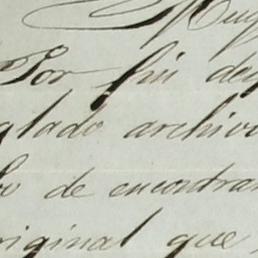 Muy
Por fin de
glado archivo
de encontrar
riginal que